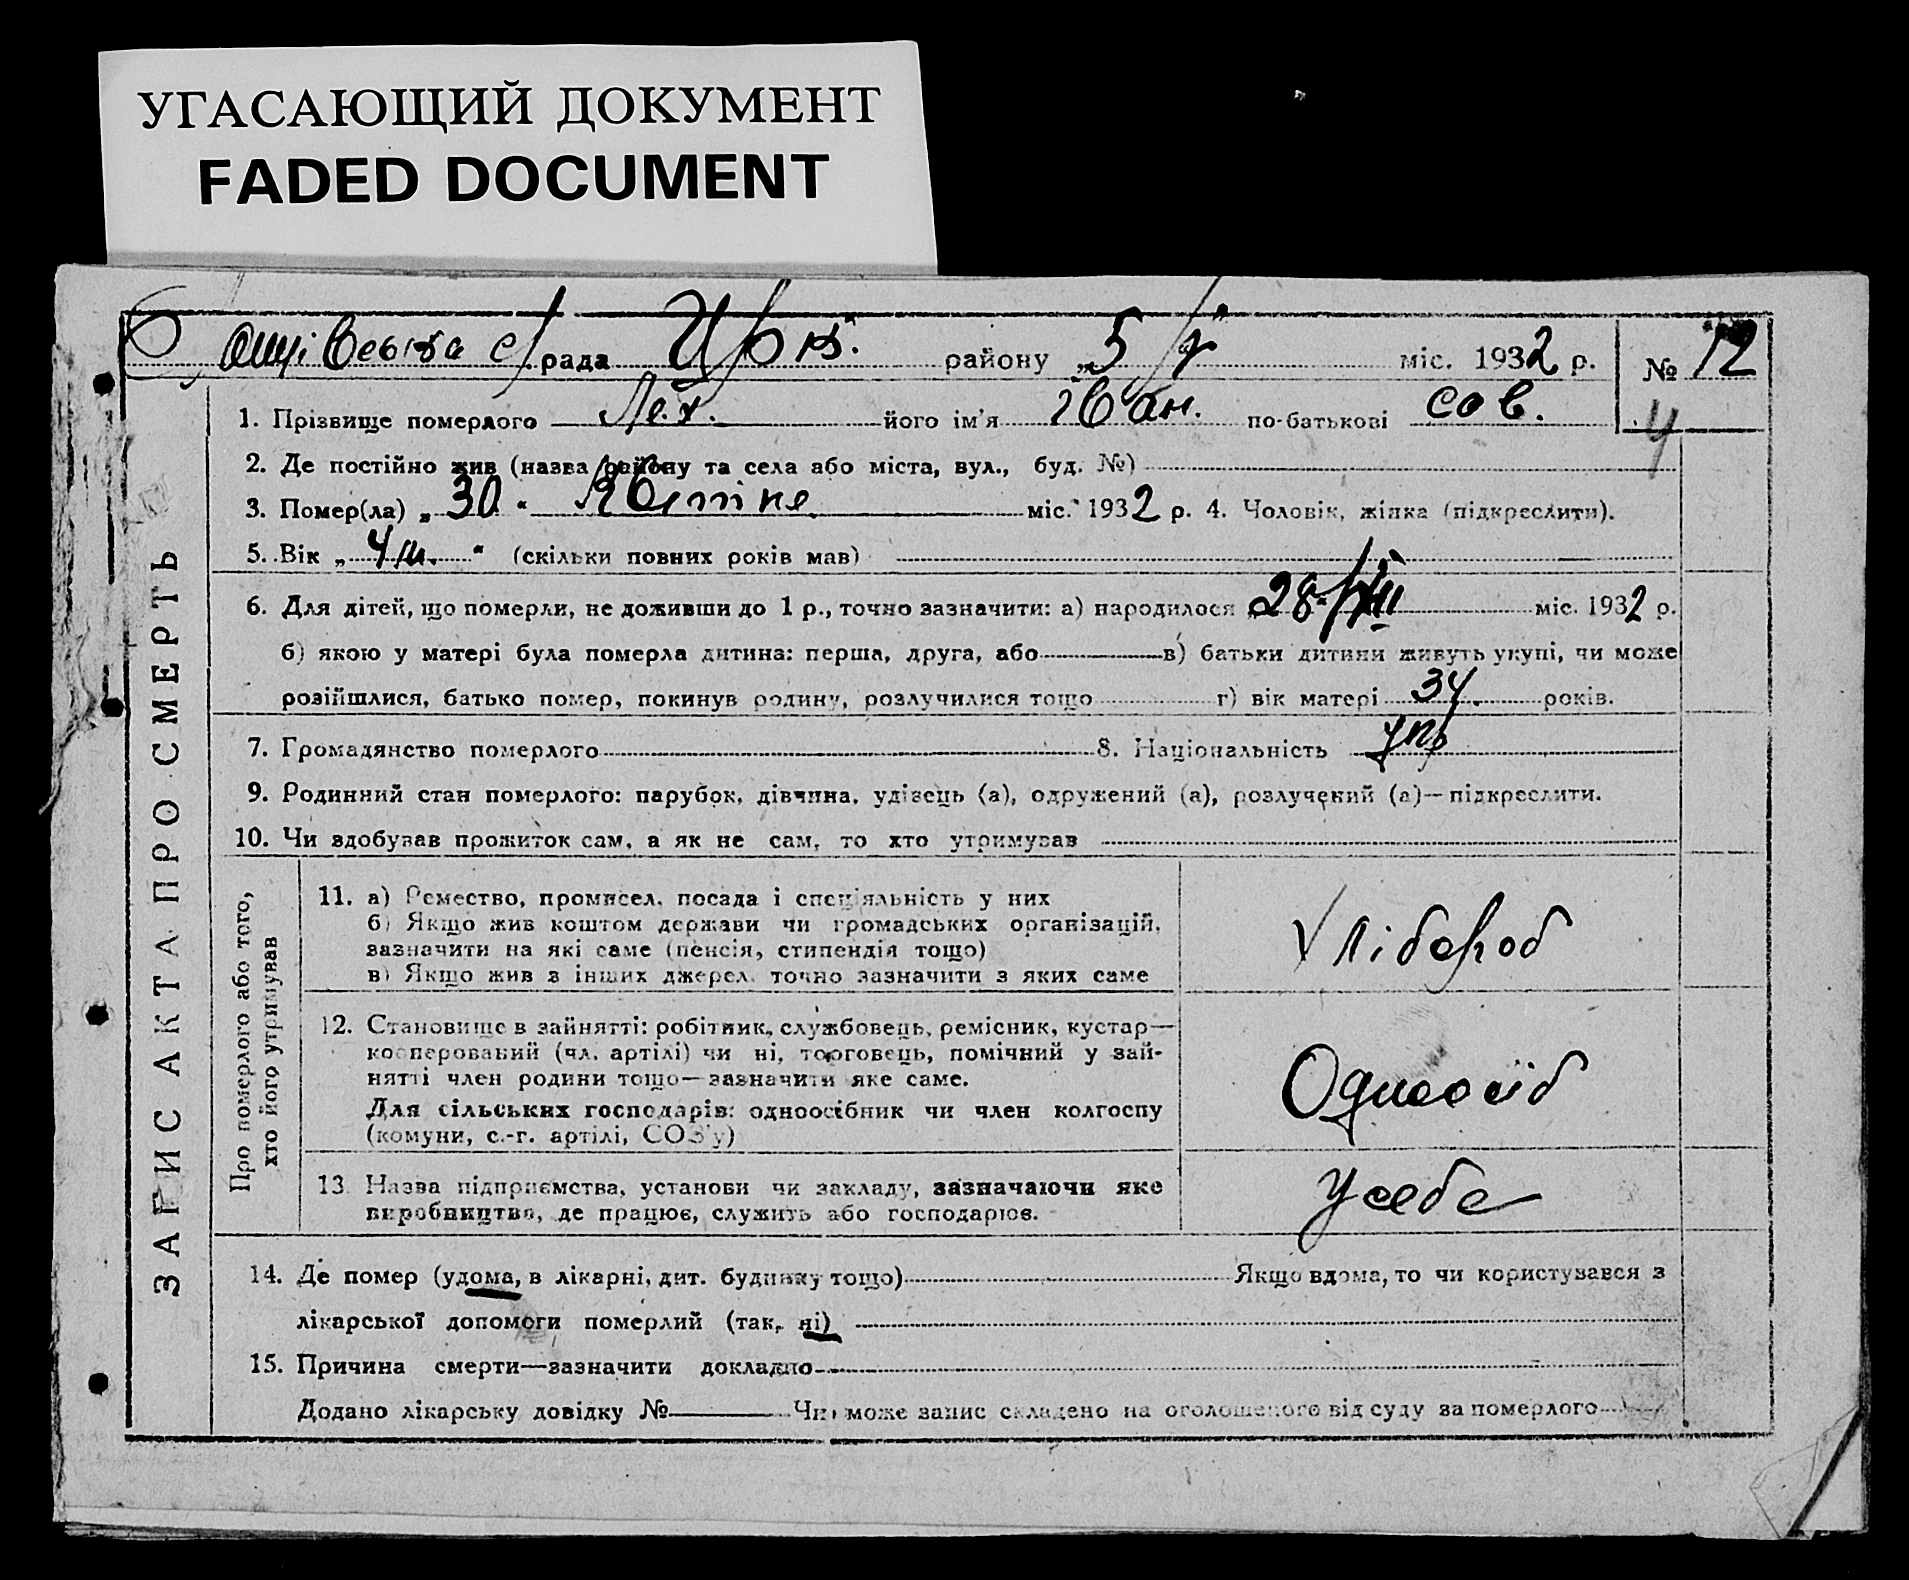 УГАСАЮЩИЙ ДОКУМЕНТ
FADED DOCUMENT
рада району „5 міс. 1932 р. № 12
4
1. Прізвище померлого його ім'я Іван. по-батькові сов.
2. Де постійно жив (назва району та села або міста, вул., буд. №)
3. Помер(ла) „30" Квітня міс. 1932 р. 4. Чоловік, жінка (підкреслити).
5. Вік „4 м." (скільки повних років мав)
6. Для дітей, що померли, не доживши до 1 р., точно зазначити: а) народилося „28" міс. 1932 р.
б) якою у матері була померла дитина: перша, друга, або в) батьки дитини живуть укупі, чи може
розійшлися, батько помер, покинув родину, розлучилися тощо г) вік матері 34. років.
7. Громадянство померлого 8. Національність укр
9. Родинний стан померлого: парубок, дівчина, удівець (а), одружений (а), розлучений (а)—підкреслити.
10. Чи здобував прожиток сам, а як не сам, то хто утримував
ЗАПИС АКТА ПРО СМЕРТЬ
Про померлого або того,
хто його утримував
11. а) Ремество, промисел, посада і спеціяльність у них
б) Якщо жив коштом держави чи громадських організацій,
зазначити на які саме (пенсія, стипендія тощо)
в) Якщо жив з інших джерел, точно зазначити з яких саме
Хлібороб
12. Становище в зайнятті: робітник, службовець, ремісник, кустар—
кооперований (чл. артілі) чи ні, торговець, помічний у зай-
нятті член родини тощо—зазначити яке саме.
Для сільських господарів: одноосібник чи член колгоспу
(комуни, с.-г. артілі, СОЗ'у)
Одноосіб
13. Назва підприємства, установи чи закладу, зазначаючи яке
виробництво, де працює, служить або господарює.
У себе
14. Де помер (удома, в лікарні, дит. будинку тощо) Якщо вдома, то чи користувався з
лікарської допомоги померлий (так, ні)
15. Причина смерти—зазначити докладно
Додано лікарську довідку № Чи може запис складено на оголошеного від суду за померлого